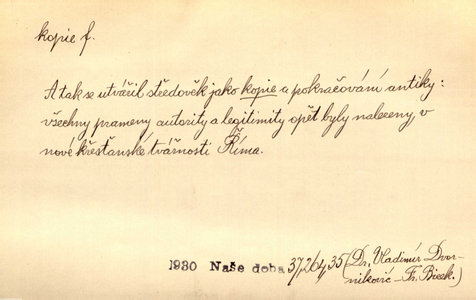 kopie f.
A tak se utvářil středověk jako kopie a pokračování antiky:
všechny prameny autority a legitimity opět byly nalezeny, v
nové křesťanské tvářnosti Říma.
1930 Naše doba 37, 264, 35 (Dr. Vladimír Dvor-
niković - Fr. Bicek.)